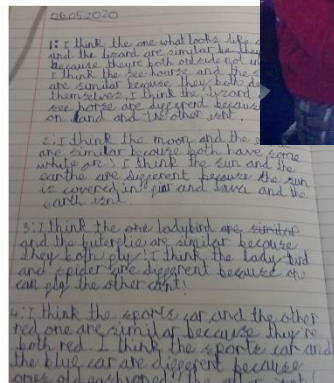 06.05.2020
1: I think the one what looks like a
and the lizard are similar be
because they're both outside not in
I think the see hourse and the
are similar because they both de
themselves. I think the lizard
see horse are different becaus
on land and the other isnt.
2: I think the moon and the
are similar because both have some
white on. I think the sun and the
earthe are different because the sun
is covered in fiar and lava and the
earth isnt.
3: I think the one ladybird are similar
and the buterflie are similar because
they both fly! I think the lady bird
and spider are different because one
can fly the other cant!
4: I think the sports car and the other
red one are similar because they're
both red. I think the sports car and
the blue car are different because
ones old fashioned